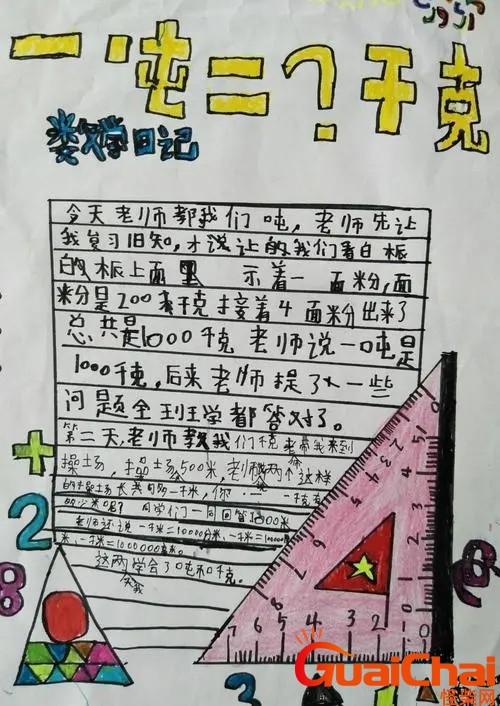 一吨=?千克
数学日记
今天老师都我们吨,老师先让
我复习旧知,才说让的我们看白板
白的板上面 示着一面粉,面
米分是200千克接着4面米分出来了
总共是1000千克老师说一吨是
1000千克,后来老师提了一些
问题全班学都答对了。
第二天,老师教我们千克老带我来到
操场,操场500米,老师两个这样
的操场长共 千米,你 一千克
同学们一同回答1000米
老师还说一千米=10000分米,一千米=100000
米,一千米=1000000毫米。
这两学会了吨和千克。
+
2
8
7 6 5 4 3 2 1 0
3
GuaiChai
怪柴网